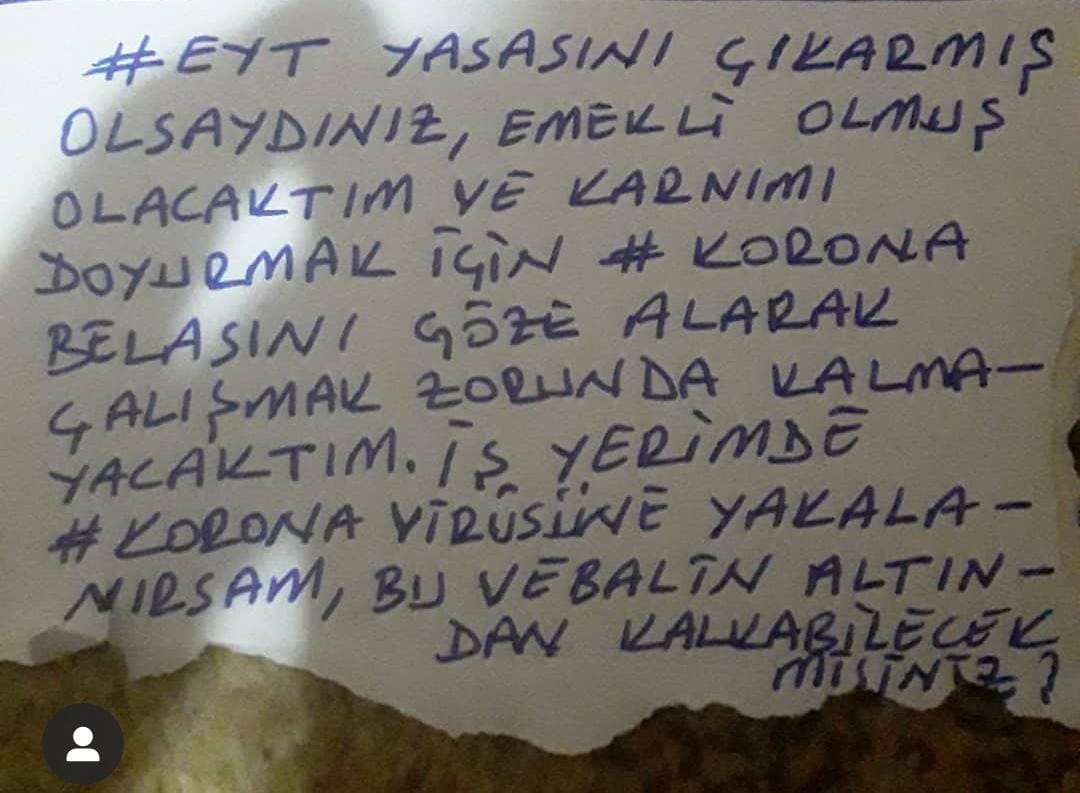 #EYT YASASINI ÇIKARMIŞ
OLSAYDINIZ, EMEKLİ OLMUŞ
OLACAKTIM VE KARNIMI
DOYURMAK İÇİN # KORONA
BELASINI GÖZE ALARAK
ÇALIŞMAK ZORUNDA KALMA-
YACAKTIM. İŞ YERİMDE
#KORONA VİRÜSÜNE YAKALA-
NIRSAM, BU VEBALİN ALTIN-
DAN KALKABİLECEK
MİSİNİZ?